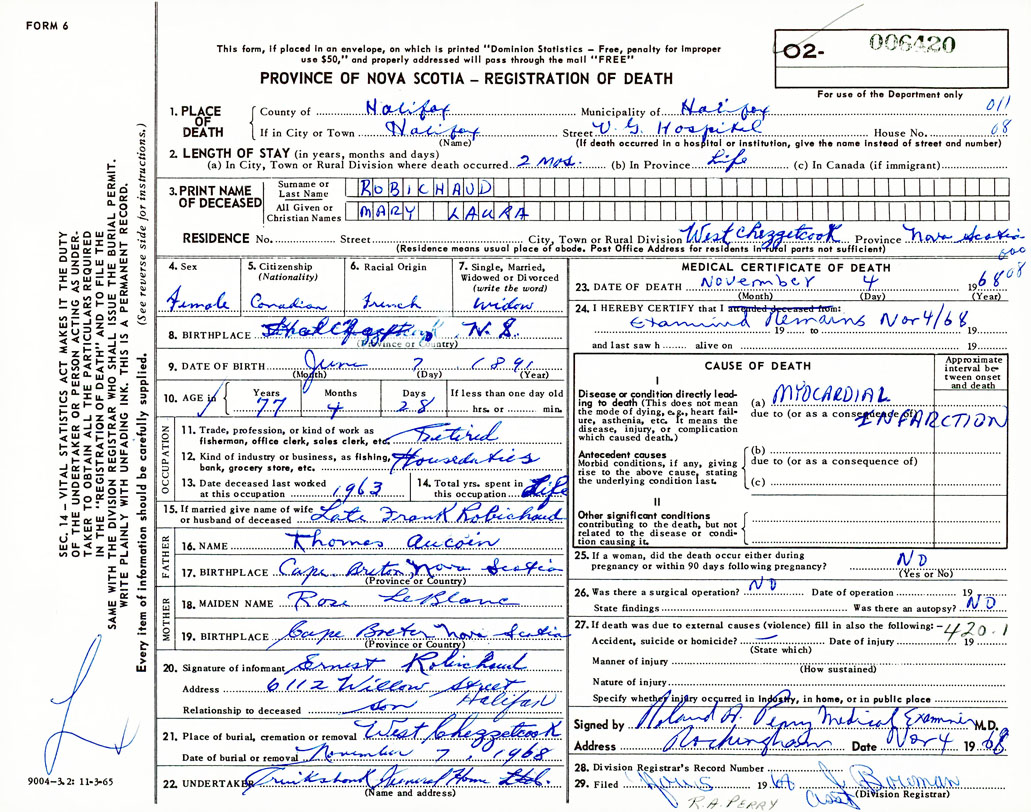 FORM 6
This form, if placed in an envelope, on which is printed "Dominion Statistics – Free, penalty for improper
use $50," and properly addressed will pass through the mail "FREE"
PROVINCE OF NOVA SCOTIA – REGISTRATION OF DEATH
O2- 006420
For use of the Department only
SEC. 14 – VITAL STATISTICS ACT MAKES IT THE DUTY
OF THE UNDERTAKER OR PERSON ACTING AS UNDER-
TAKER TO OBTAIN ALL THE PARTICULARS REQUIRED
IN THE "REGISTRATION OF DEATH" AND TO FILE THE
SAME WITH THE DIVISION REGISTRAR WHO SHALL ISSUE THE BURIAL PERMIT.
WRITE PLAINLY WITH UNFADING INK. THIS IS A PERMANENT RECORD.
Every item of information should be carefully supplied. (See reverse side for instructions.)
1. PLACE OF DEATH
County of Halifax Municipality of Halifax 011
If in City or Town Halifax Street V. G. Hospital House No. 08
(Name) (If death occurred in a hospital or institution, give the name instead of street and number)
2. LENGTH OF STAY (in years, months and days)
(a) In City, Town or Rural Division where death occurred 2 mos. (b) In Province Life (c) In Canada (if immigrant)
3. PRINT NAME OF DECEASED
Surname or Last Name ROBICHAUD
All Given or Christian Names MARY LAURA
RESIDENCE No. Street City, Town or Rural Division West Chezzetcook Province Nova Scotia
(Residence means usual place of abode. Post Office Address for residents in rural parts not sufficient)
4. Sex Female
5. Citizenship (Nationality) Canadian
6. Racial Origin French
7. Single, Married, Widowed or Divorced (write the word) Widow
8. BIRTHPLACE N. S.
(Province or Country)
9. DATE OF BIRTH June 7 1891
(Month) (Day) (Year)
10. AGE in Years 77 Months 4 Days 28 If less than one day old hrs. or min.
OCCUPATION
11. Trade, profession, or kind of work as
fisherman, office clerk, sales clerk, etc. Retired
12. Kind of industry or business, as fishing,
bank, grocery store, etc. Houseduties
13. Date deceased last worked
at this occupation 1963
14. Total yrs. spent in
this occupation Life
15. If married give name of wife
or husband of deceased Late Frank Robichaud
FATHER
16. NAME Thomas Aucoin
17. BIRTHPLACE Cape Breton Nova Scotia
(Province or Country)
MOTHER
18. MAIDEN NAME Rose LeBlanc
19. BIRTHPLACE Cape Breton Nova Scotia
(Province or Country)
20. Signature of informant Ernest Robichaud
Address 6112 Willow Street
Halifax
Relationship to deceased son
21. Place of burial, cremation or removal West Chezzetcook
Date of burial or removal November 7, 1968
22. UNDERTAKER Cruikshank Funeral Home Ltd.
(Name and address)
9004-3.2: 11-3-65
MEDICAL CERTIFICATE OF DEATH
23. DATE OF DEATH November 4 1968 08
(Month) (Day) (Year)
24. I HEREBY CERTIFY that I attended deceased from:
Examined Remains Nov 4/68
19 to 19
and last saw h alive on 19
CAUSE OF DEATH
Approximate interval between onset and death
I
Disease or condition directly lead-
ing to death (This does not mean
the mode of dying, e.g., heart fail-
ure, asthenia, etc. It means the
disease, injury, or complication
which caused death.)
(a) MYOCARDIAL
due to (or as a consequence of)
INFARCTION
Antecedent causes
Morbid conditions, if any, giving
rise to the above cause, stating
the underlying condition last.
(b)
due to (or as a consequence of)
(c)
II
Other significant conditions
contributing to the death, but not
related to the disease or condi-
tion causing it.
25. If a woman, did the death occur either during
pregnancy or within 90 days following pregnancy? NO
(Yes or No)
26. Was there a surgical operation? NO Date of operation 19
State findings Was there an autopsy? NO
27. If death was due to external causes (violence) fill in also the following: – 420.1
Accident, suicide or homicide? — Date of injury 19
(State which)
Manner of injury
(How sustained)
Nature of injury
Specify whether injury occurred in Industry, in home, or in public place
Signed by Roland A. Perry Medical Examiner M.D.
Address Rockingham Date Nov 4 1968
28. Division Registrar's Record Number
29. Filed Nov 5 1968 J Bowman
Asst (Division Registrar)
R.A. PERRY